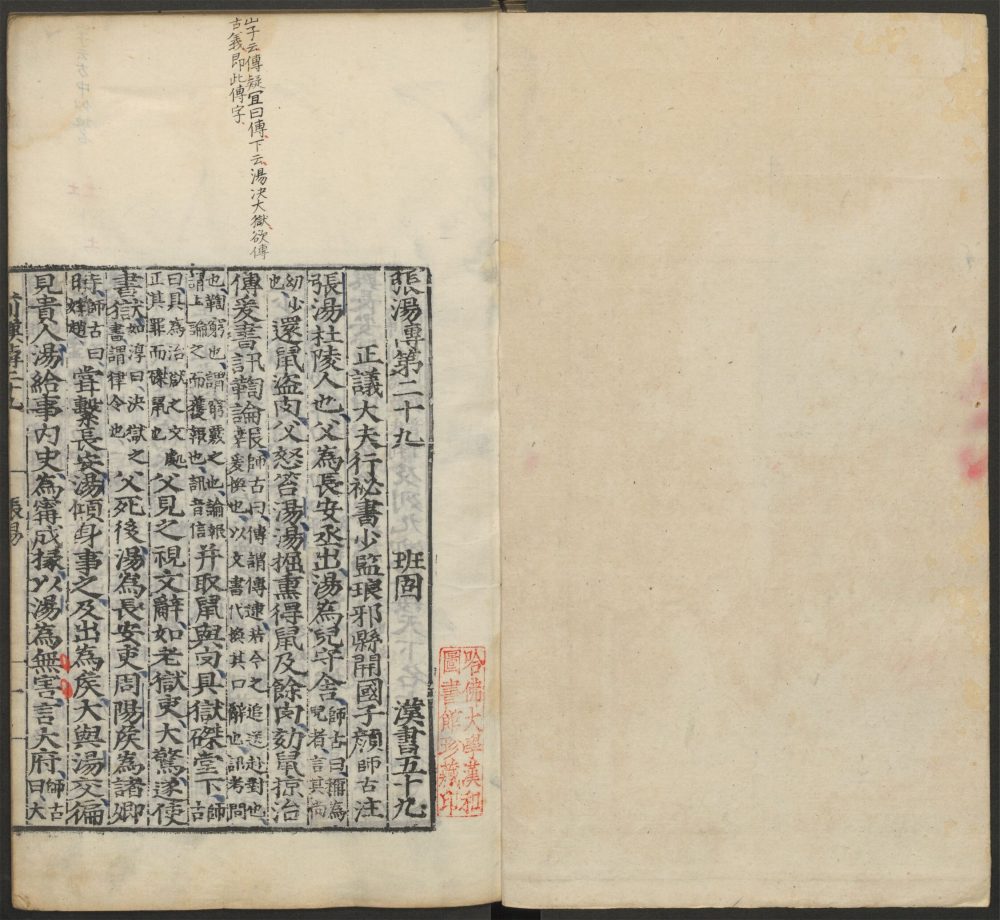 哈佛大學漢和
圖書館珍藏印
山子云傳疑宜曰傳下云湯决大獄欲傳
古義即此傳字
張湯傳第二十九 班固 漢書五十九
正議大夫行祕書少監琅邪縣開國子顏師古注
張湯杜陵人也父為長安丞出湯為兒守舍師古曰稱為兒者言其尚
幼少也還鼠盜肉父怒笞湯湯掘熏得鼠及餘肉劾鼠掠治
傳爰書訊鞫論報師古曰傳謂傳逮若今之追送赴對也爰換也以文書代換其口辭也訊考問
也鞫窮也謂窮覈之也論報謂上論之而獲報也訊音信并取鼠與肉具獄磔堂下師古
曰具為治獄之文處正其罪而磔鼠也父見之視文辭如老獄吏大驚遂使
書獄如淳曰决獄之書謂律令也父死後湯為長安吏周陽侯為諸卿
時師古曰姓趙甞繫長安湯傾身事之及出為侯大與湯交徧
見貴人湯給事内史為甯成掾以湯為無害言大府師古曰大